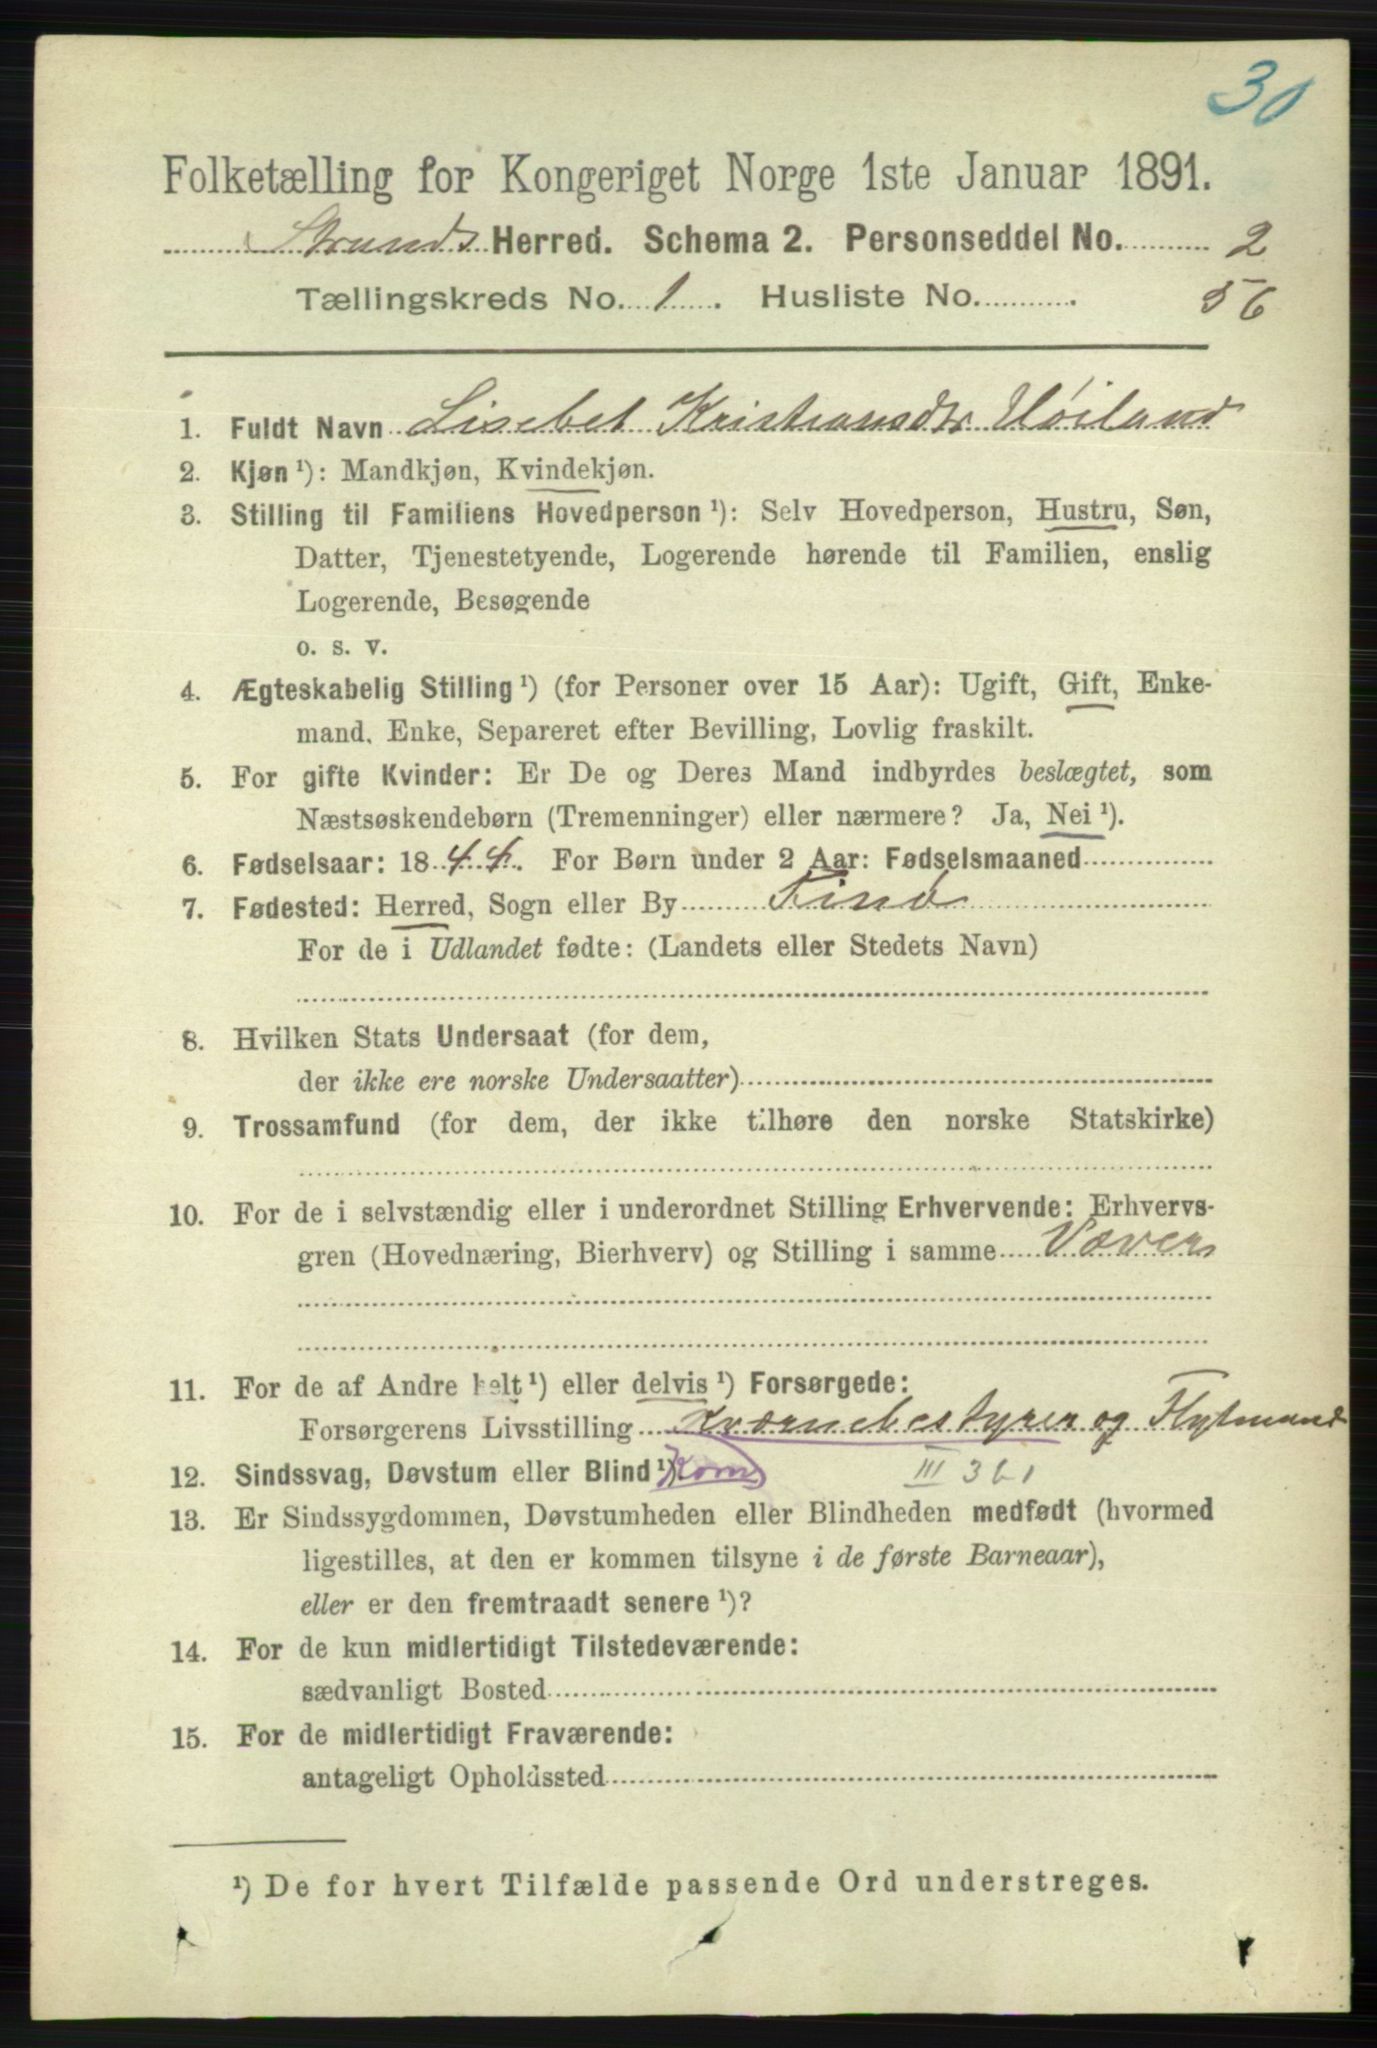 30
Folketælling for Kongeriget Norge 1ste Januar 1891.
Strands Herred. Schema 2. Personseddel No. 2
Tællingskreds No. 1. Husliste No. 56
1. Fuldt Navn Lisebet Kristiansdtr Høiland
2. Kjøn¹): Mandkjøn, Kvindekjøn.
3. Stilling til Familiens Hovedperson¹): Selv Hovedperson, Hustru, Søn,
Datter, Tjenestetyende, Logerende hørende til Familien, enslig
Logerende, Besøgende
o. s. v.
4. Ægteskabelig Stilling¹) (for Personer over 15 Aar): Ugift, Gift, Enke-
mand, Enke, Separeret efter Bevilling, Lovlig fraskilt.
5. For gifte Kvinder: Er De og Deres Mand indbyrdes beslægtet, som
Næstsøskendebørn (Tremenninger) eller nærmere? Ja, Nei¹).
6. Fødselsaar: 1844. For Børn under 2 Aar: Fødselsmaaned
7. Fødested: Herred, Sogn eller By Finø
For de i Udlandet fødte: (Landets eller Stedets Navn)
8. Hvilken Stats Undersaat (for dem,
der ikke ere norske Undersaatter)
9. Trossamfund (for dem, der ikke tilhøre den norske Statskirke)
10. For de i selvstændig eller i underordnet Stilling Erhvervende: Erhvervs-
gren (Hovednæring, Bierhverv) og Stilling i samme Væver
11. For de af Andre helt¹) eller delvis¹) Forsørgede:
Forsørgerens Livsstilling Kværnebestyrer og Flytmand
12. Sindssvag, Døvstum eller Blind¹) Korn III 361
13. Er Sindssygdommen, Døvstumheden eller Blindheden medfødt (hvormed
ligestilles, at den er kommen tilsyne i de første Barneaar),
eller er den fremtraadt senere¹)?
14. For de kun midlertidigt Tilstedeværende:
sædvanligt Bosted
15. For de midlertidigt Fraværende:
antageligt Opholdssted
¹) De for hvert Tilfælde passende Ord understreges.